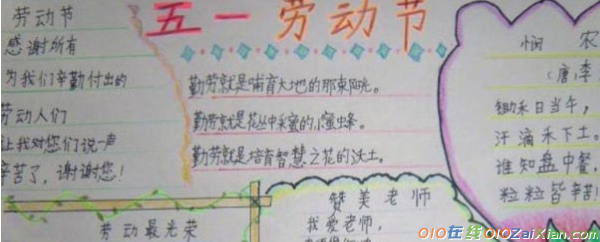 五一劳动节
劳动节
感谢所有
为我们辛勤付出的
劳动人们
让我对您们说一声
辛苦了，谢谢您！
勤劳就是哺育大地的那束阳光。
勤劳就是花丛中采蜜的小蜜蜂。
勤劳就是培育智慧之花的沃土。
悯 农
（唐，李
锄禾日当午，
汗滴禾下土。
谁知盘中餐，
粒粒皆辛苦！
劳动最光荣
赞美老师
我爱老师，
010在线010ZaiXian.com